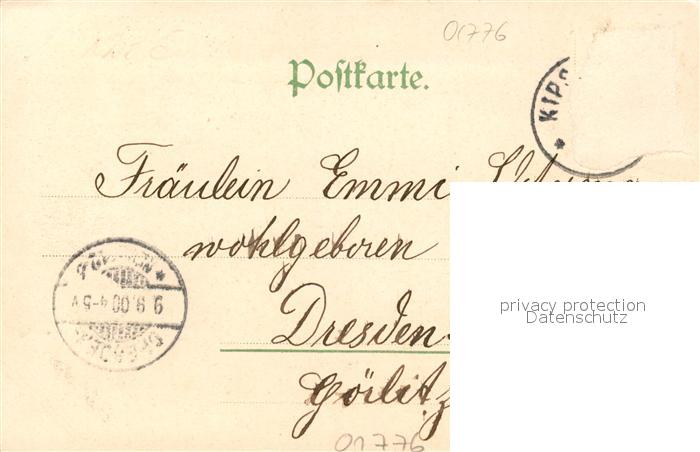 01776
Postkarte.
KIPS
Fräulein Emmi
wohlgeboren
Dresden-
Görlitz
9.9.00 4-5 V
DRESDEN
privacy protection
Datenschutz
01776